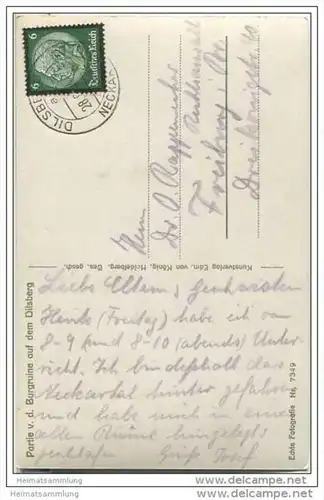 6 Deutsches Reich 6
DILSBE
NECKAR
Herrn
Dr. O. Rappenecker
Rechtsanwalt
Freiburg i. Br.
Dreikönigstr. 10
Kunstverlag Edm. von König, Heidelberg. Ges. gesch.
Partie v. d. Burgruine auf dem Dilsberg
Echte Fotografie Nr. 7349
Liebe Eltern,
Heute (Freitag) habe ich von
8-9 und 8-10 (abends) Unter-
richt. Ich bin deshalb das
Neckartal hinter gefahren
und habe mich in einer
alten Ruine hingelegt
geschlafen Gruß Josef
Heimatsammlung
www.heimatsammlung.de
Heimatsammlung
www.heimatsammlung.de